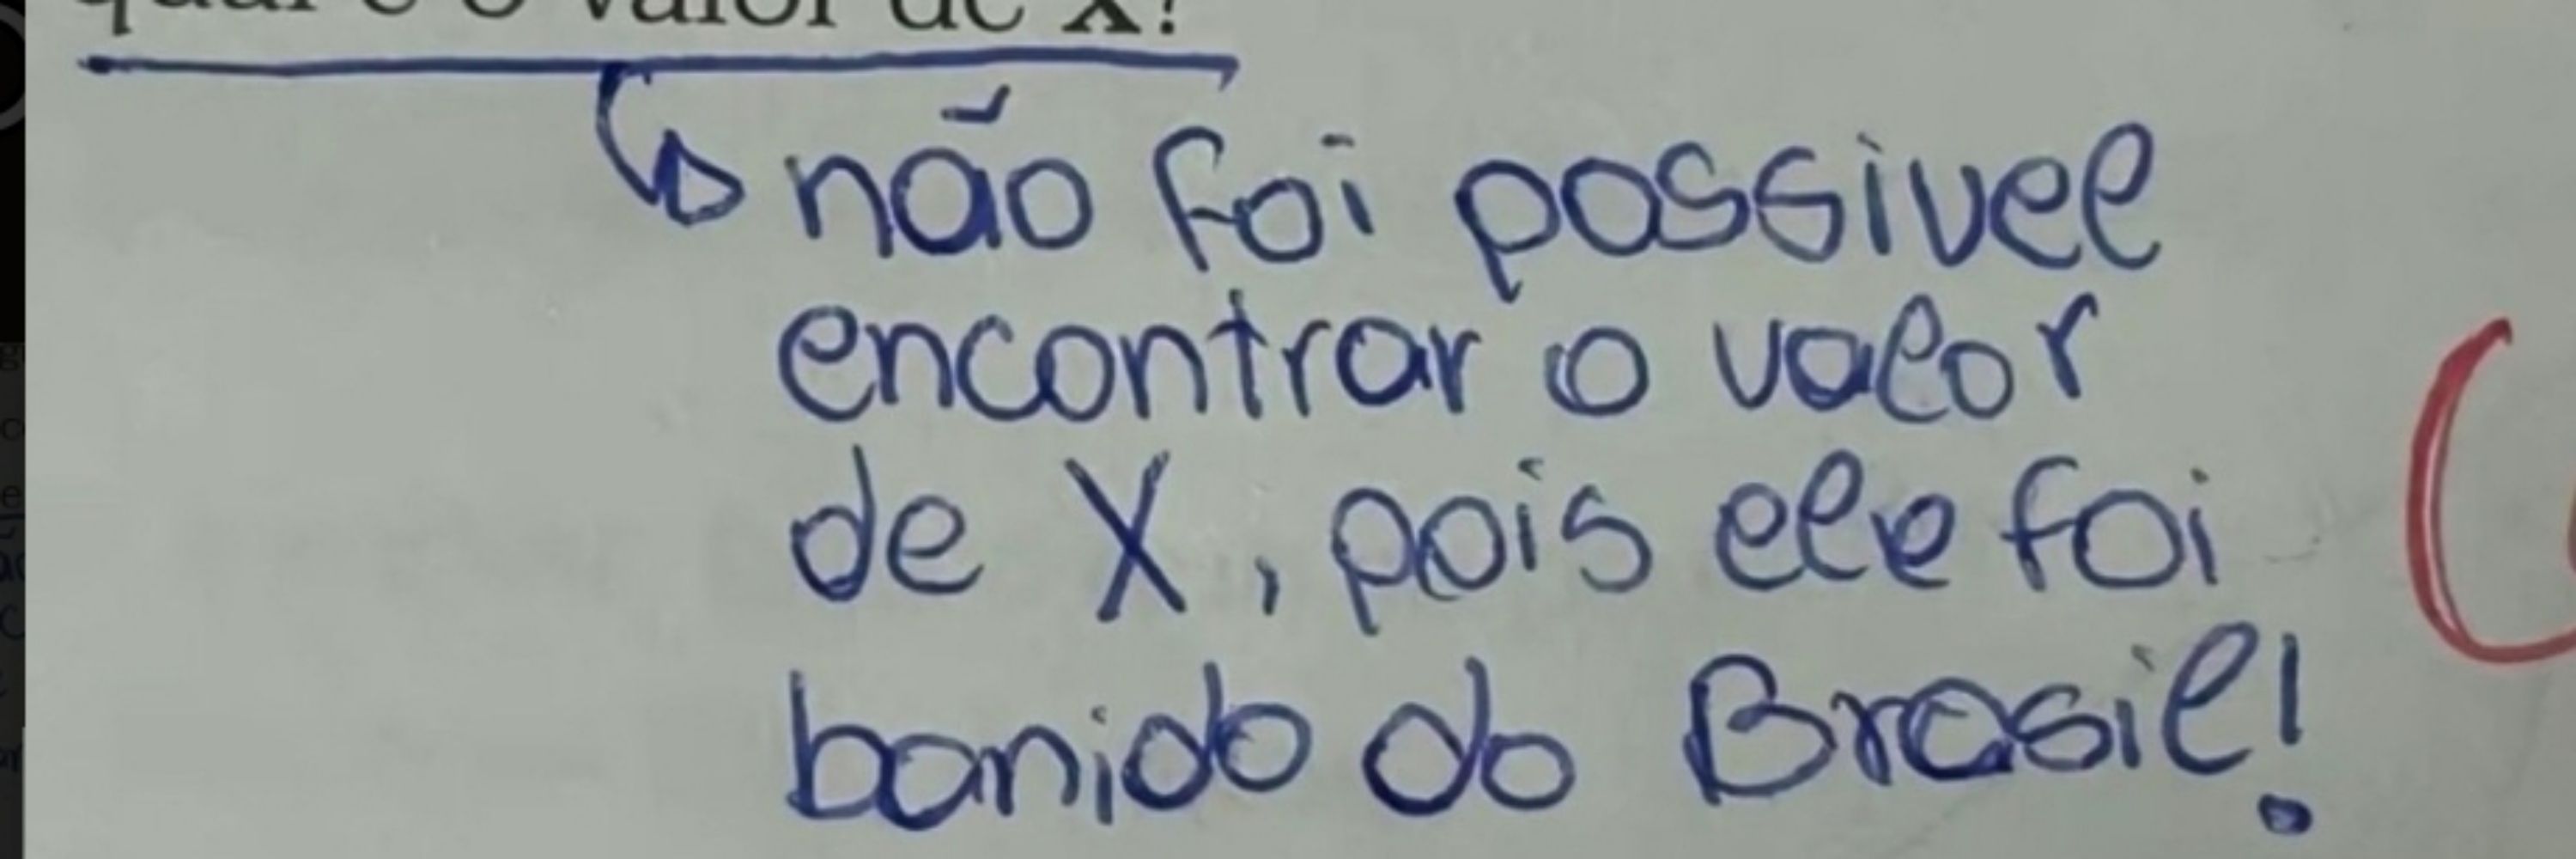 qual é o valor de x?
não foi possivel
encontrar o valor
de X, pois ele foi
banido do Brasil!